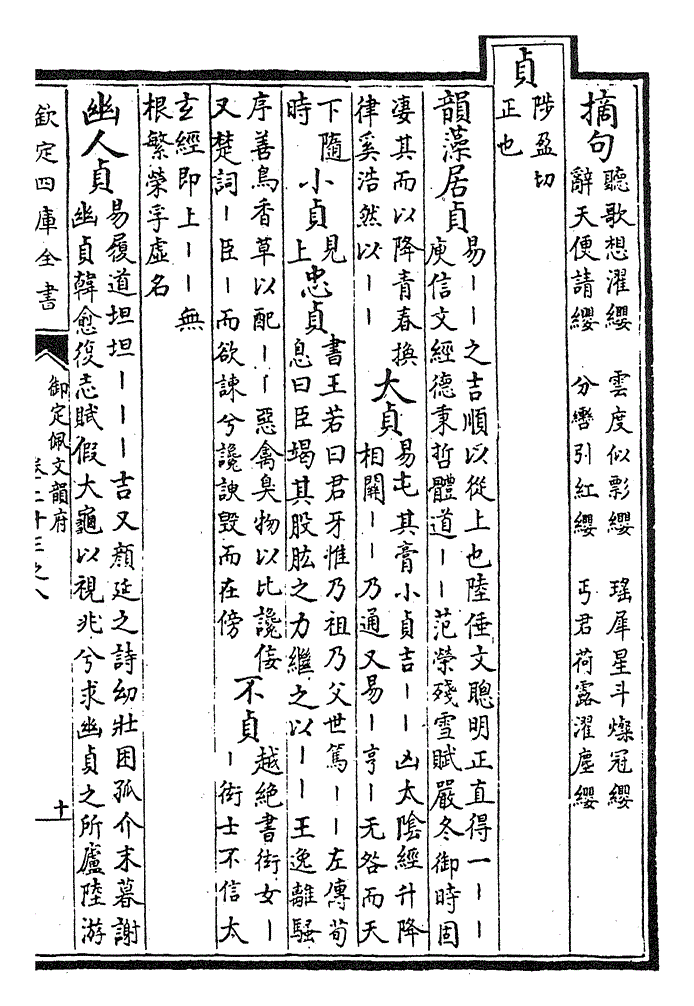 摘句
聽歌想濯纓　雲度似彯纓　瑤犀星斗燦冠纓
辭天便請纓　分轡引紅纓　丐君荷露濯塵纓
貞
陟盈切
正也
韻藻居貞
易丨丨之吉順以從上也陸倕文聰明正直得一丨丨
庾信文經德秉哲體道丨丨范榮殘雪賦嚴冬御時固
凄其而以降青春換
律奚浩然以丨丨
大貞
易屯其膏小貞吉丨丨凶太陰經升降
相關丨丨乃通又易丨亨丨无咎而天
下隨
時
小貞
見
上
忠貞
書王若曰君牙惟乃祖乃父世篤丨丨左傳荀
息曰臣竭其股肱之力繼之以丨丨王逸離騷
序善鳥香草以配丨丨惡禽臭物以比讒佞
又楚詞丨臣丨而欲諫兮讒諛毀而在傍
不貞
越絶書街女丨
丨街士不信太
玄經即上丨丨無
根繁榮孚虛名
幽人貞
易履道坦坦丨丨丨吉又顔延之詩幼壯困孤介末暮謝
幽貞韓愈復志賦假大龜以視兆兮求幽貞之所廬陸游
欽定四庫全書
御定佩文韻府
卷二十三之八
十